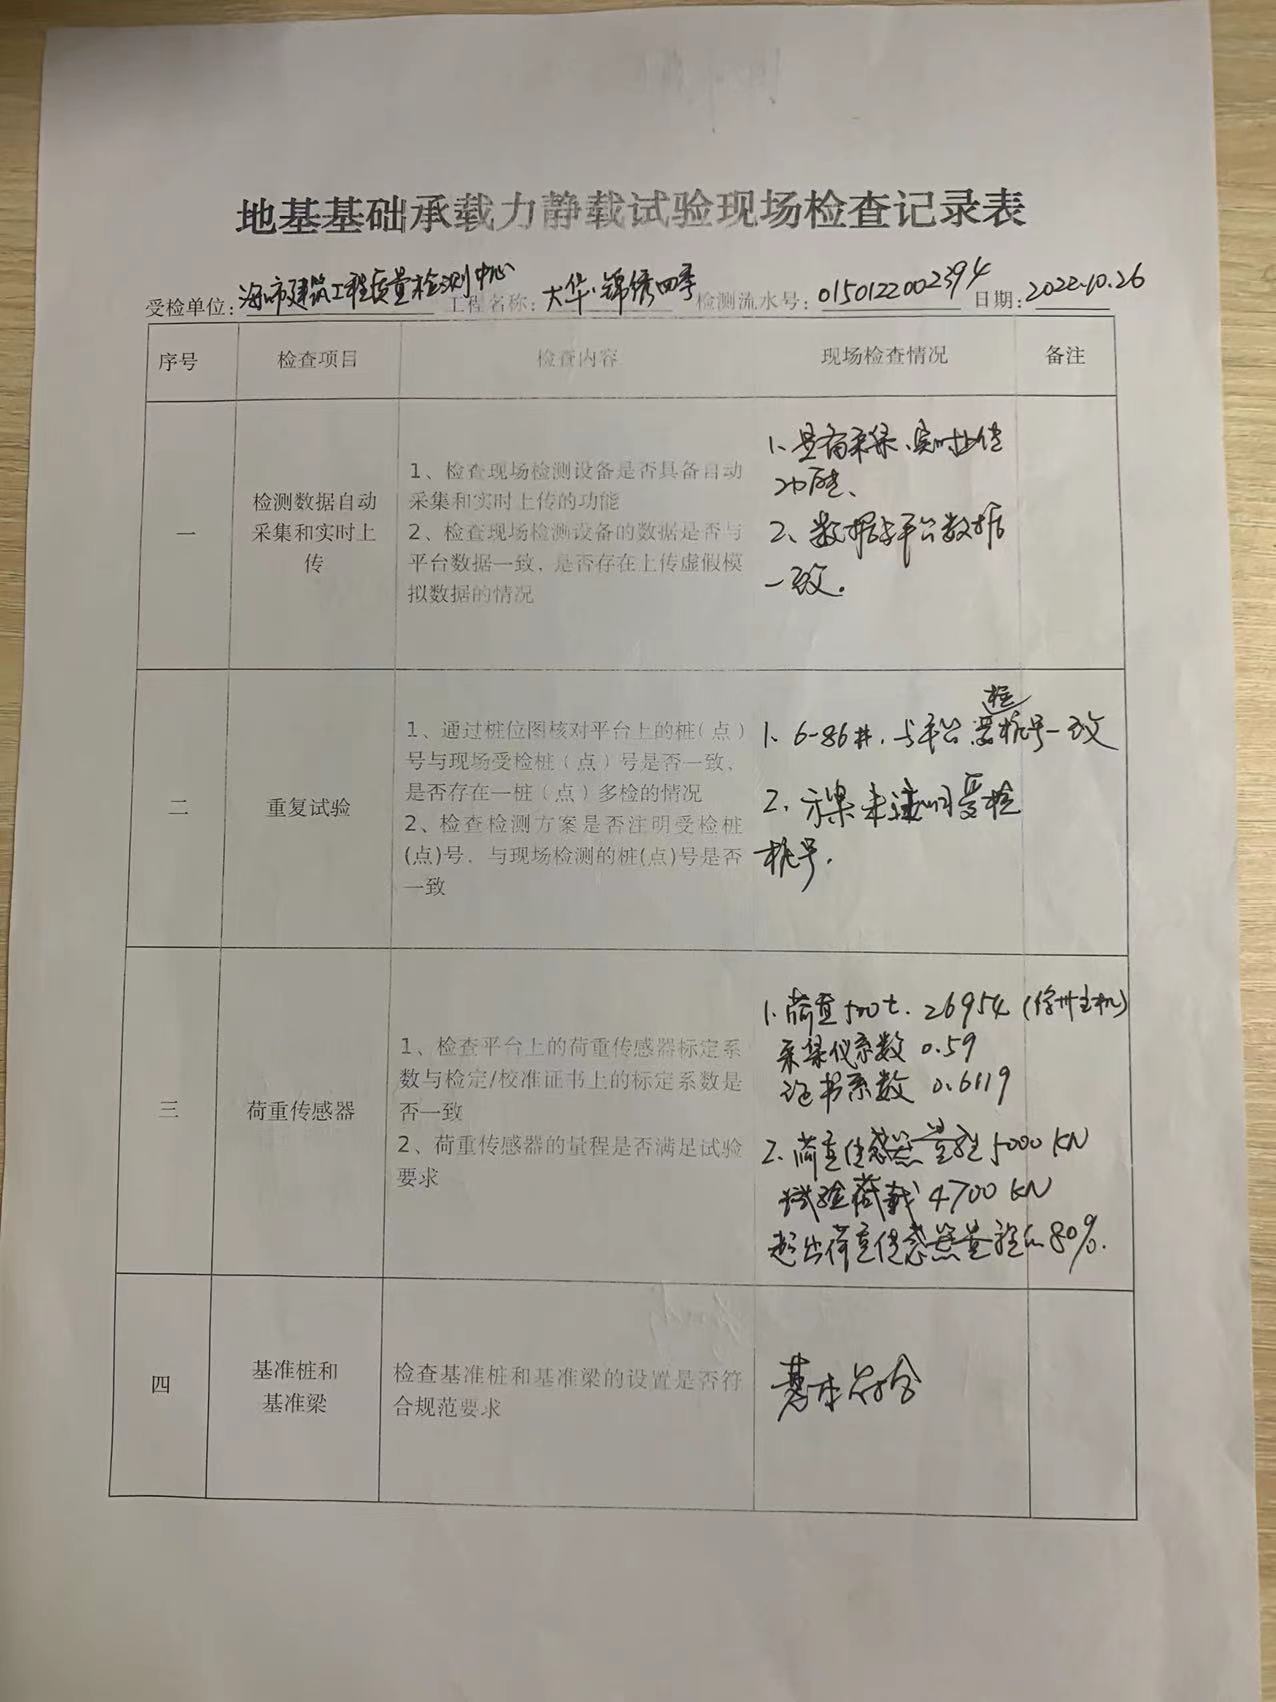 地基基础承载力静载试验现场检查记录表
受检单位:海口市建筑工程质量检测中心 工程名称:大华·锦绣四季 检测流水号:0150122002394 日期:2022.10.26
序号 检查项目 检查内容 现场检查情况 备注
一
检测数据自动
采集和实时上
传
1、检查现场检测设备是否具备自动
采集和实时上传的功能
2、检查现场检测设备的数据是否与
平台数据一致，是否存在上传虚假模
拟数据的情况
1、具备采集、实时上传
功能、
2、数据与平台数据
一致.
二
重复试验
1、通过桩位图核对平台上的桩(点)
号与现场受检桩(点)号是否一致，
是否存在一桩(点)多检的情况
2、检查检测方案是否注明受检桩
(点)号，与现场检测的桩(点)号是否
一致
1、6-86#，与平台受检桩号一致
2、方案未注明受检
桩号.
三
荷重传感器
1、检查平台上的荷重传感器标定系
数与检定/校准证书上的标定系数是
否一致
2、荷重传感器的量程是否满足试验
要求
1、荷重500t. 26954 (徐州主机)
采集仪系数 0.59
证书系数 0.6119
2、荷重传感器量程5000KN
试验荷载4700KN
超出荷重传感器量程的80%.
四
基准桩和
基准梁
检查基准桩和基准梁的设置是否符
合规范要求
基本符合